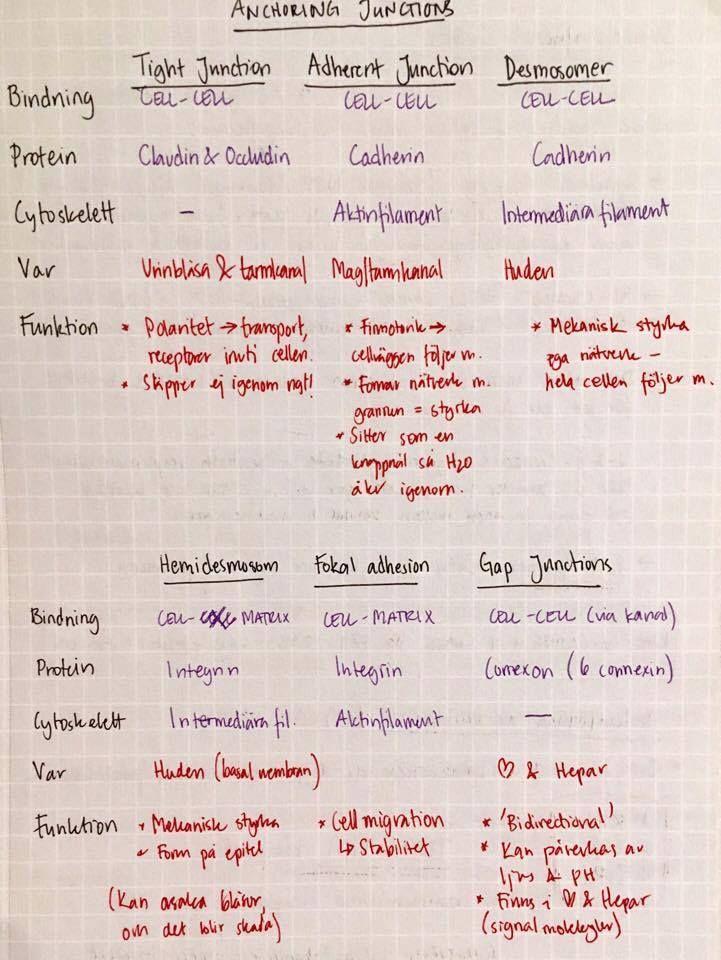 ANCHORING JUNCTIONS
Tight Junction Adherent Junction Desmosomer
Bindning CELL-CELL CELL-CELL CELL-CELL
Protein Claudin & Occludin Cadherin Cadherin
Cytoskelett — Aktinfilament Intermediära filament
Var Urinblåsa & tarmkanal Mag/tarmkanal Huden
Funktion * Polaritet → transport, * Finmotorik → * Mekanisk styrka
receptorer inuti cellen. cellväggen följer m. ega nätverk –
* Släpper ej igenom ngt! * Formar nätverk m. hela cellen följer m.
grannen = styrka
* Sitter som en
knappnål så H2O
åkr igenom.
Hemidesmosom Fokal adhesion Gap Junctions
Bindning CELL- MATRIX CELL-MATRIX CELL-CELL (via kanal)
Protein Integrin Integrin Connexon (6 connexin)
Cytoskelett Intermediära fil. Aktinfilament —
Var Huden (basal membran) ♡ & Hepar
Funktion * Mekanisk styrka * Cell migration * 'Bidirectional'
* Form på epitel ↳ Stabilitet * Kan påverkas av
ljus & pH
(Kan orsaka blåsor, * Finns i ♡ & Hepar
om det blir skada) (signal molekyler)